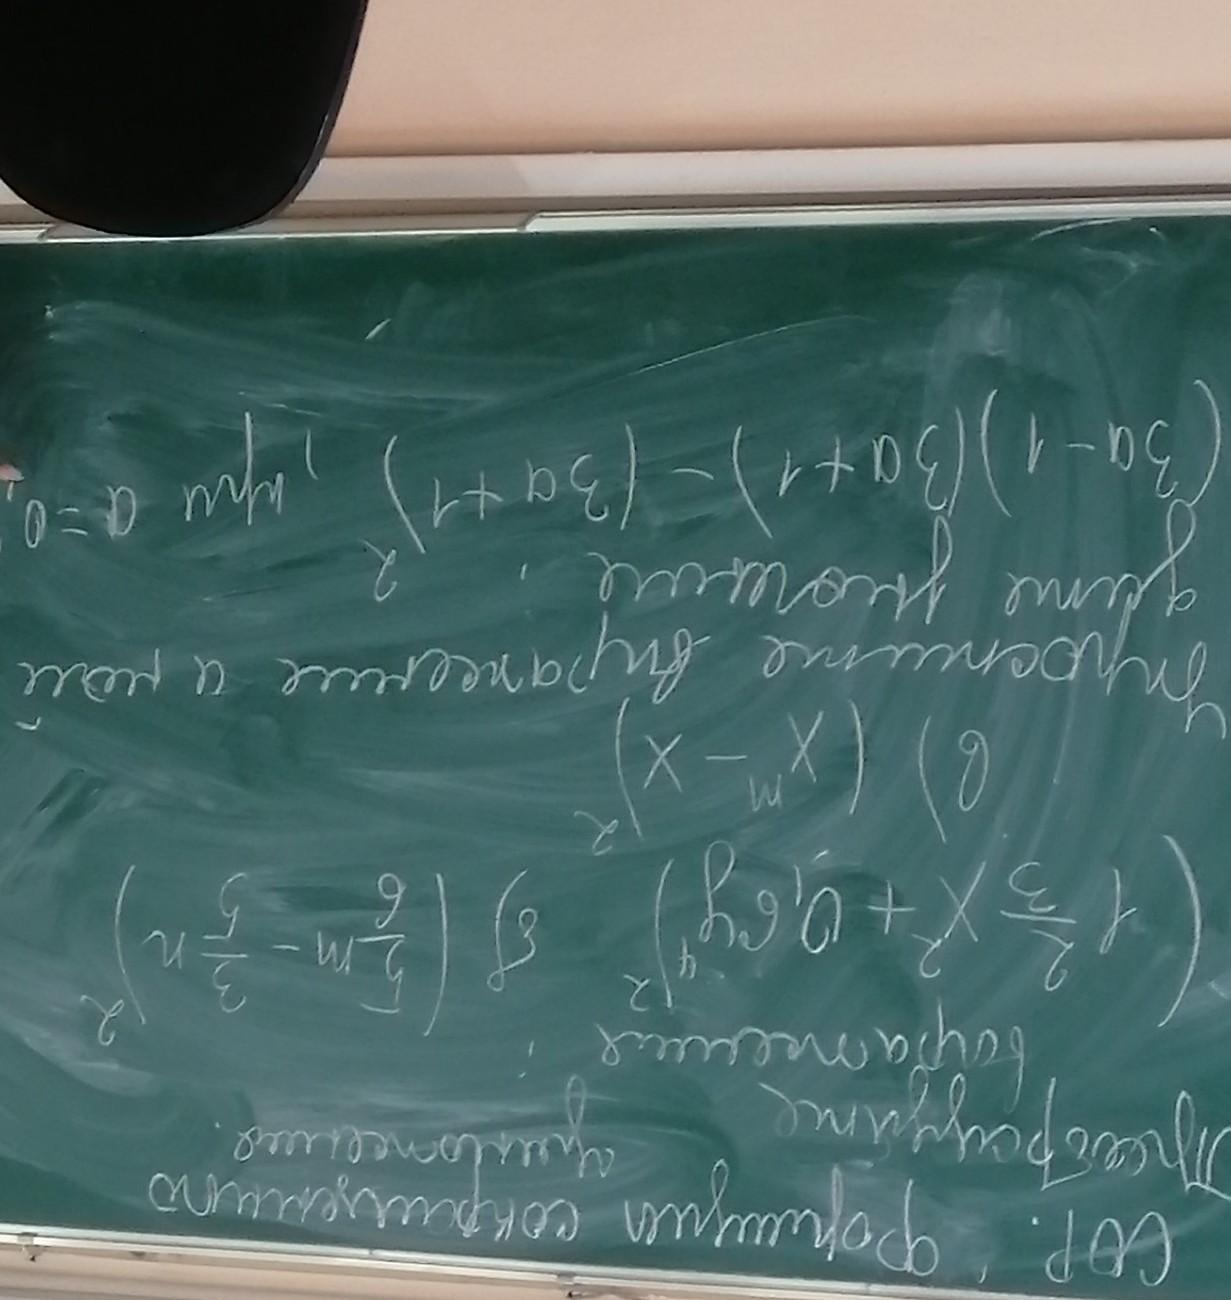 СОР. Формулы сокращенного
умножения.
Преобразуйте
выражение:
(1 2/3 x² + 0,6y⁴)² б) (5/6 m - 3/5 n)²
в) (xᵐ - x)²
Упростите выражение и
дите
(3a-1)(3a+1) - (3a+1)², при a=0,